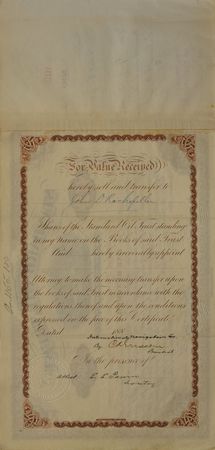 For Value Received
hereby sell and transfer to
John D. Rockefeller
Shares of the Standard Oil Trust standing
in my name on the Books of said Trust
And hereby irrevocably appoint
Attorney to make the necessary transfer upon
the books of said Trust in accordance with the
regulations thereof and upon the conditions
expressed on the face of this Certificate.
Dated 188
International Navigation Co.
By
President
In the presence of
Attest
Secretary